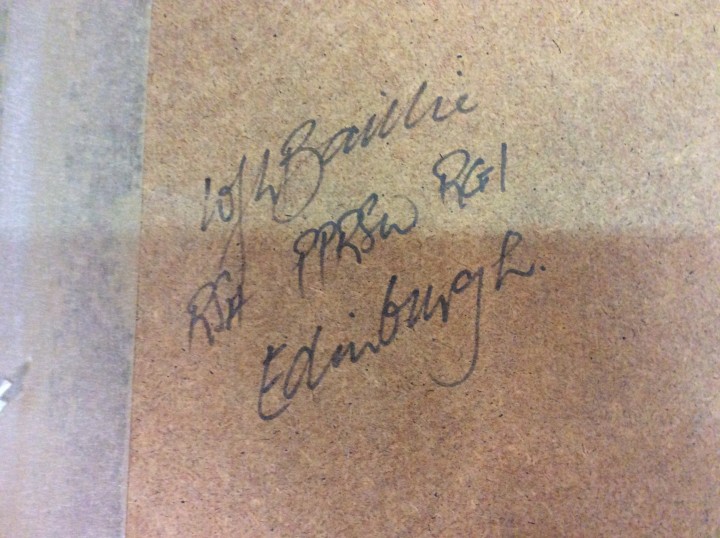 WJL Baillie
RSA PPRSW RGI
Edinburgh.